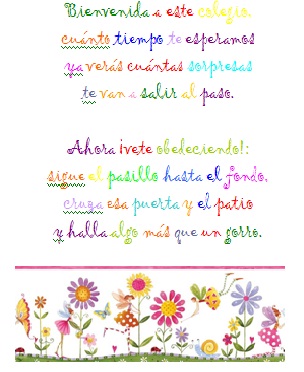 Bienvenida a este colegio,
cuánto tiempo te esperamos
ya verás cuántas sorpresas
te van a salir al paso.
Ahora ¡vete obedeciendo!:
sigue el pasillo hasta el fondo,
cruza esa puerta y el patio
y halla algo más que un gorro.